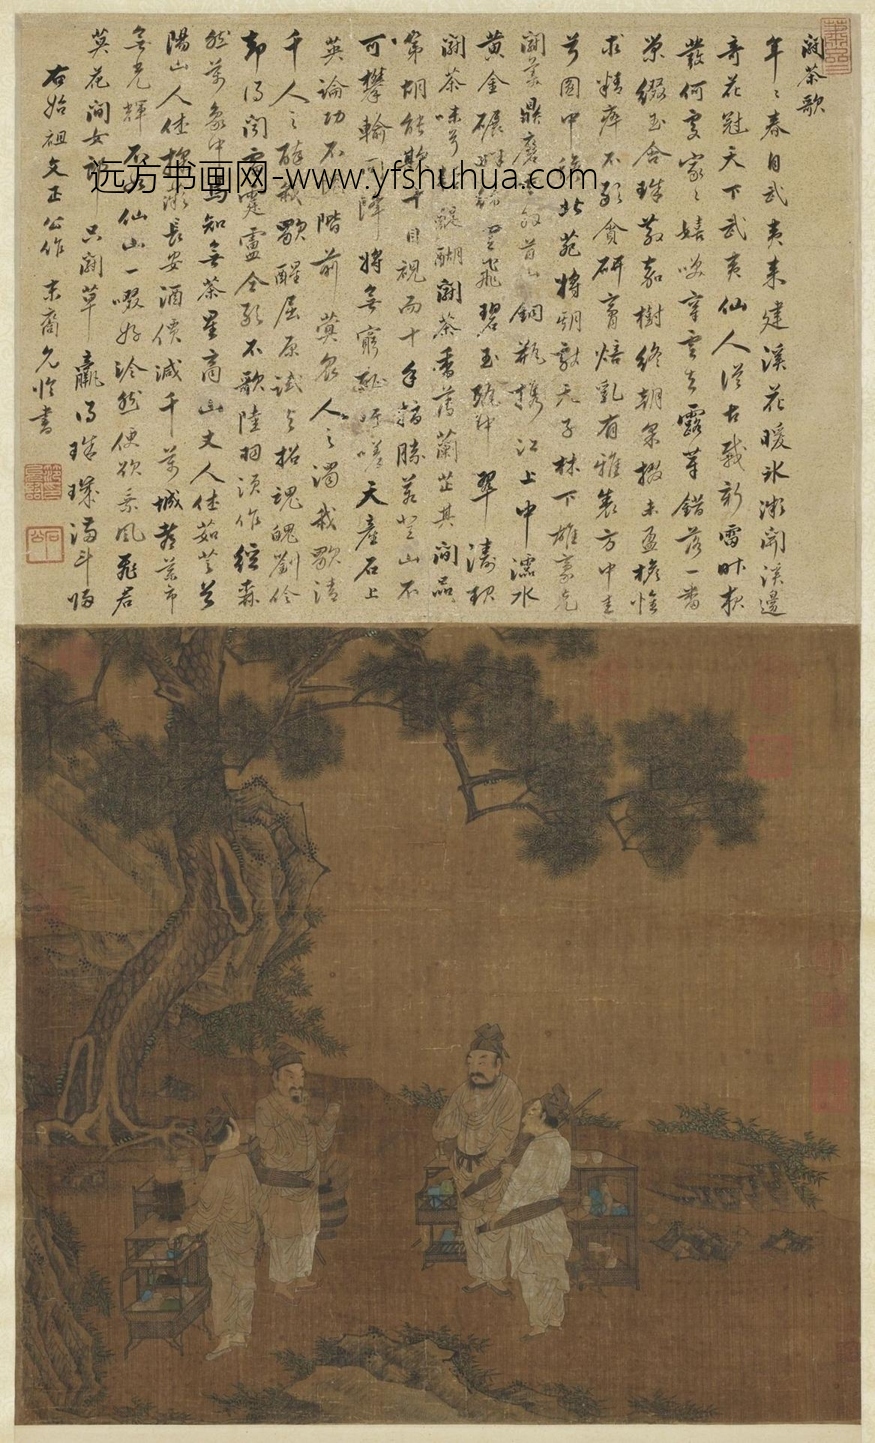 鬪茶歌
年〻春自武夷來建溪花暖冰漸開溪邊
奇花冠天下武夷仙人從古栽新雷昨夜
發何處家〻嬉笑穿雲去露芽錯落一番
榮綴玉含珠散嘉樹終朝采掇未盈襜惟
求精粹不敢貪研膏焙乳有雅製方中圭
兮圓中蟾北苑將期獻天子林下雄豪先
鬪美鼎磨雲外首山銅瓶攜江上中濡水
黃金碾畔綠塵飛碧玉甌中翠濤起
鬪茶味兮輕醍醐鬪茶香薄蘭芷其間品
第胡能欺十目視而十手指勝若登山不
可攀輸同降將無窮恥吁嗟天產石上
英論功不愧階前蓂衆人之濁我歌清
千人之醉我歌醒屈原試與招魂魄劉伶
却得聞雷霆盧仝敢不歌陸羽須作經森
然萬象中焉知無茶星商山丈人休茹芝首
陽山人休採薇長安酒價減千萬城都藥市
無光輝不如仙山一啜好泠然便欲乘風飛君
莫花間女郎只鬪草贏得珠璣滿斗歸
右始祖文正公作 末裔允臨書
远方书画网-www.yfshuhua.com